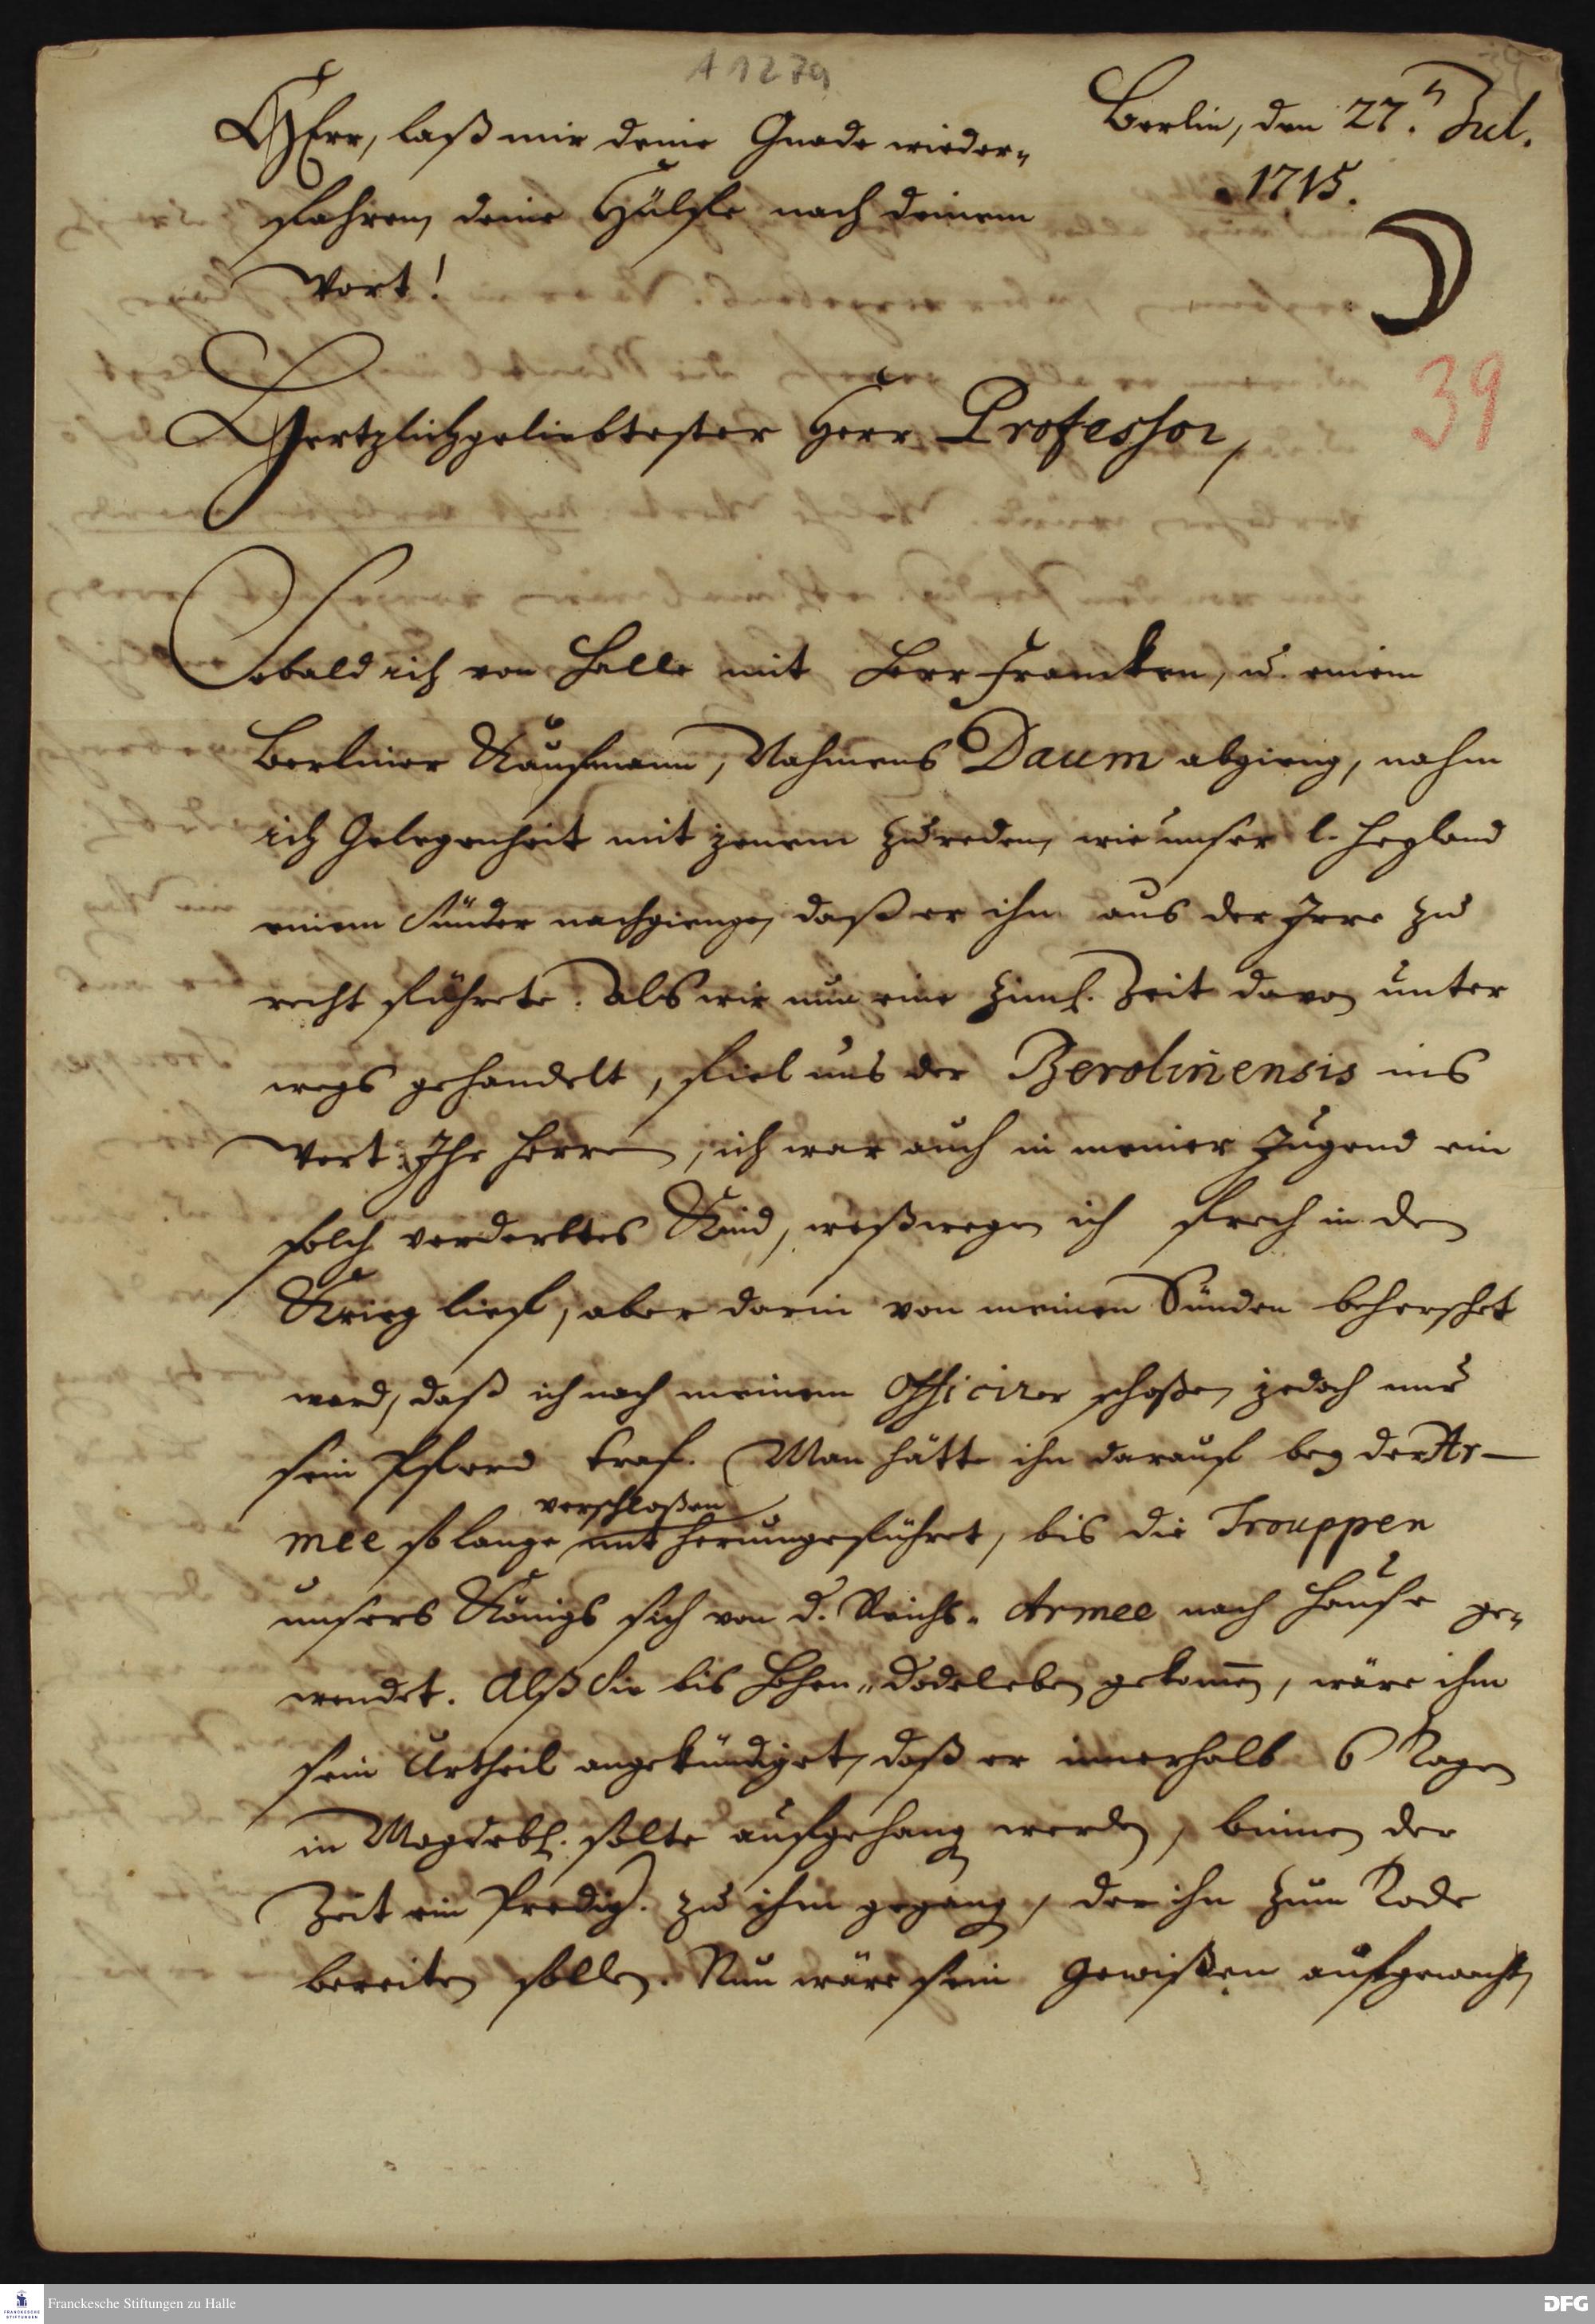 A 127a
Berlin, den 27. Jul.
1715.
HErr, laß mir deine Gnade wieder-
fahren, deine Hülffe nach deinem
Wort!
39
Hertzlichgeliebtester Herr Professor,
Sobald ich von Halle mit Herr Francken, u. einem
Berliner Kauffmann, Nahmens Daum abgieng, nahm
ich Gelegenheit mit jenem zu reden, wie unser l. Heyland
einem Sünder nachgienge, daß er ihn aus der Irre zu
recht führete. Als wir nun eine ziml. Zeit davon unter
wegs gehandelt, fiel uns der Berolinensis ins
Wort: Ihr Herren, ich war auch in meiner Jugend ein
solch verderbtes Kind, weßwegen ich frech in den
Krieg lieff, aber darin von meinen Sünden beherschet
ward, daß ich nach meinem Officirer schoße, jedoch nur
sein Pferd traf. Man hätte ihn darauff bey der Ar-
verschloßen
mee so lange mit herumgeführet, bis die Trouppen
unsers Königs sich von d. Reichs-Armee nach Hause ge-
wendet. Alß Sie bis Hohen-Dodeleben gekommen, wäre ihm
sein Urtheil angekündiget, daß er innerhalb 6 Tagen
in Magdebl. solte aufgehang werden, binnen der
Zeit ein Predig. zu ihm gegang, der ihn zum Tode
bereiten sollen. Nun wäre sein Gewißen aufgewacht,
Franckesche Stiftungen zu Halle
DFG